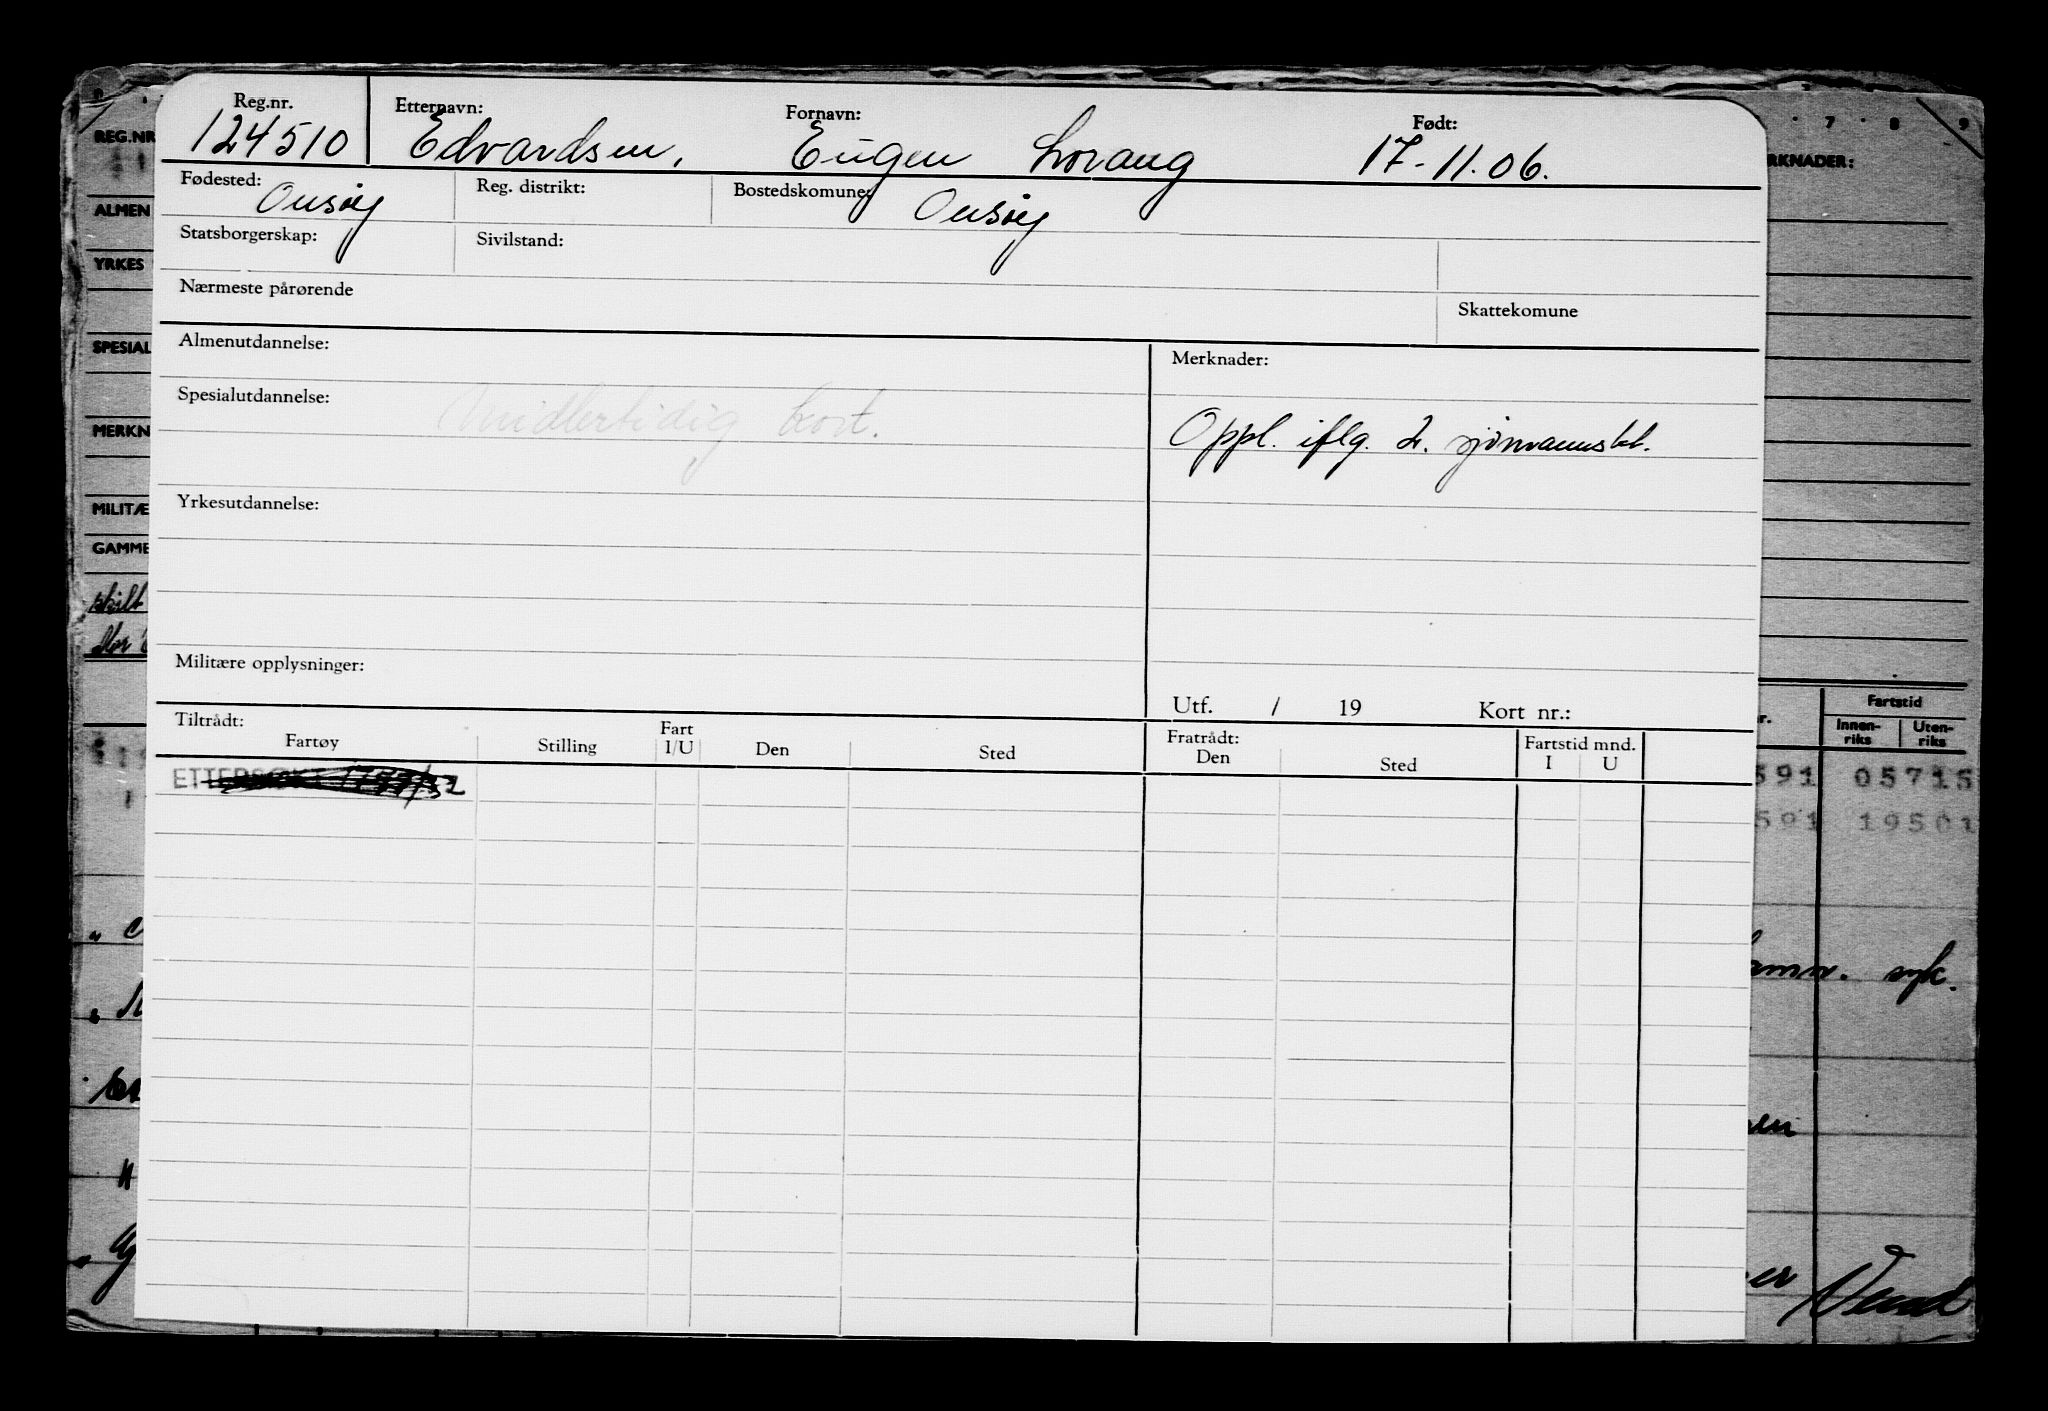 Reg.nr. Etternavn: Fornavn: Født:
124510 Edvardsen, Eugen Lorang 17-11.06.
Fødested: Onsøy Reg. distrikt: Bostedskomune: Onsøy
Statsborgerskap: Sivilstand:
Nærmeste pårørende Skattekomune
Almenutdannelse: Merknader:
Spesialutdannelse: Midlertidig kort.
Oppl. iflg. 2. sjømannsbl.
Yrkesutdannelse:
Militære opplysninger:
Utf. / 19 Kort nr.:
Tiltrådt: Fratrådt:
Fartøy Stilling Fart I/U Den Sted Den Sted Fartstid mnd. I U
ETTERSØKT
REG.NR
ALMEN
YRKES
SPESIAL
MERKN
MILITÆ
GAMME
skilt
7 8 9
RKNADER:
r. Fartstid
Innen-riks Uten-riks
591 05715
591 19501
syk.